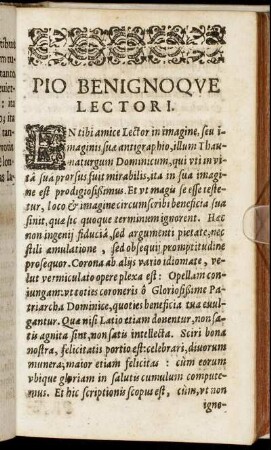 PIO BENIGNOQVE
LECTORI.
EN tibi amice Lector in imagine, seu i-
maginis sua antigraphio, illum Thau-
maturgum Dominicum, qui vti in vi-
tâ sua prorsus fuit mirabilis, ita in sua imagi-
ne est prodigiosissimus. Et vt magis se esse teste-
tur, loco & imagine circumscribi beneficia sua
sinit, quæ sic quoque terminum ignorent. Hæc
non ingenij fiduciâ, sed argumenti pietate, nec
stili æmulatione, sed obsequij promptitudine
prosequor. Corona ab alijs vario idiomate, ve-
lut vermiculato opere plexa est: Opellam con-
iungam: vt toties coroneris ô Gloriosissime Pa-
triarcha Dominice, quoties beneficia tua euul-
gantur. Quæ nisi Latio etiam donentur, non sa-
tis agnita sint, non satis intellecta. Sciri bona
nostra, felicitatis portio est: celebrari, diuorum
munera; maior etiam felicitas: cùm eorum
vbique gloriam in salutis cumulum compute-
mus. Et hic scriptionis scopus est, cùm, vt non
igno-